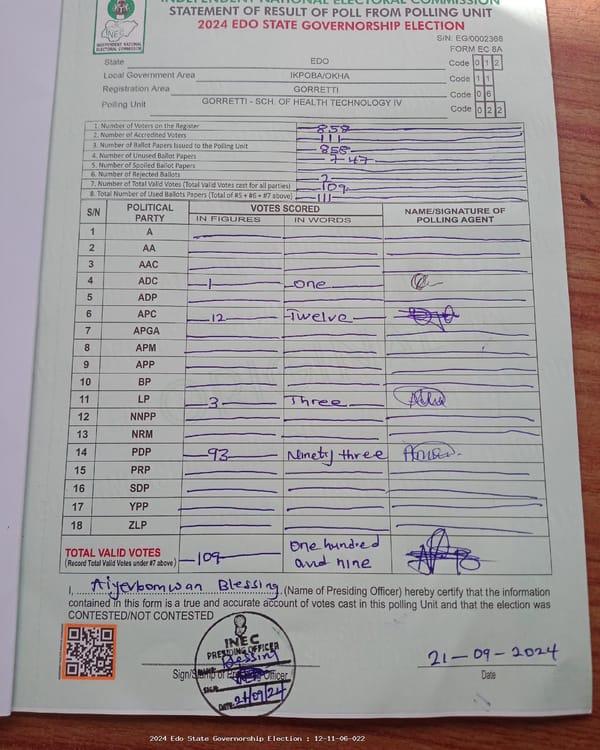 INDEPENDENT NATIONAL ELECTORAL COMMISSION
STATEMENT OF RESULT OF POLL FROM POLLING UNIT
2024 EDO STATE GOVERNORSHIP ELECTION
INEC
INDEPENDENT NATIONAL
ELECTORAL COMMISSION
S/N: EG/0002368
FORM EC 8A
State EDO Code 0 1 2
Local Government Area IKPOBA/OKHA Code 1 1
Registration Area GORRETTI Code 0 6
Polling Unit GORRETTI - SCH. OF HEALTH TECHNOLOGY IV Code 0 2 2
1. Number of Voters on the Register 858
2. Number of Accredited Voters 111
3. Number of Ballot Papers Issued to the Polling Unit 858
4. Number of Unused Ballot Papers 747
5. Number of Spoiled Ballot Papers
6. Number of Rejected Ballots 2
7. Number of Total Valid Votes (Total Valid Votes cast for all parties) 109
8. Total Number of Used Ballots Papers (Total of #5 + #6 + #7 above) 111
S/N POLITICAL PARTY VOTES SCORED NAME/SIGNATURE OF POLLING AGENT
IN FIGURES IN WORDS
1 A
2 AA
3 AAC
4 ADC 1 one
5 ADP
6 APC 12 Twelve
7 APGA
8 APM
9 APP
10 BP
11 LP 3 Three
12 NNPP
13 NRM
14 PDP 93 Ninety three
15 PRP
16 SDP
17 YPP
18 ZLP
TOTAL VALID VOTES 109 One hundred and nine
(Record Total Valid Votes under #7 above)
I, Aiyevbomwan Blessing (Name of Presiding Officer) hereby certify that the information
contained in this form is a true and accurate account of votes cast in this polling Unit and that the election was
CONTESTED/NOT CONTESTED
INEC
PRESIDING OFFICER
Blessing
SIGN:
DATE: 21/09/24
21-09-2024
Sign/Stamp of Presiding Officer Date
2024 Edo State Governorship Election : 12-11-06-022